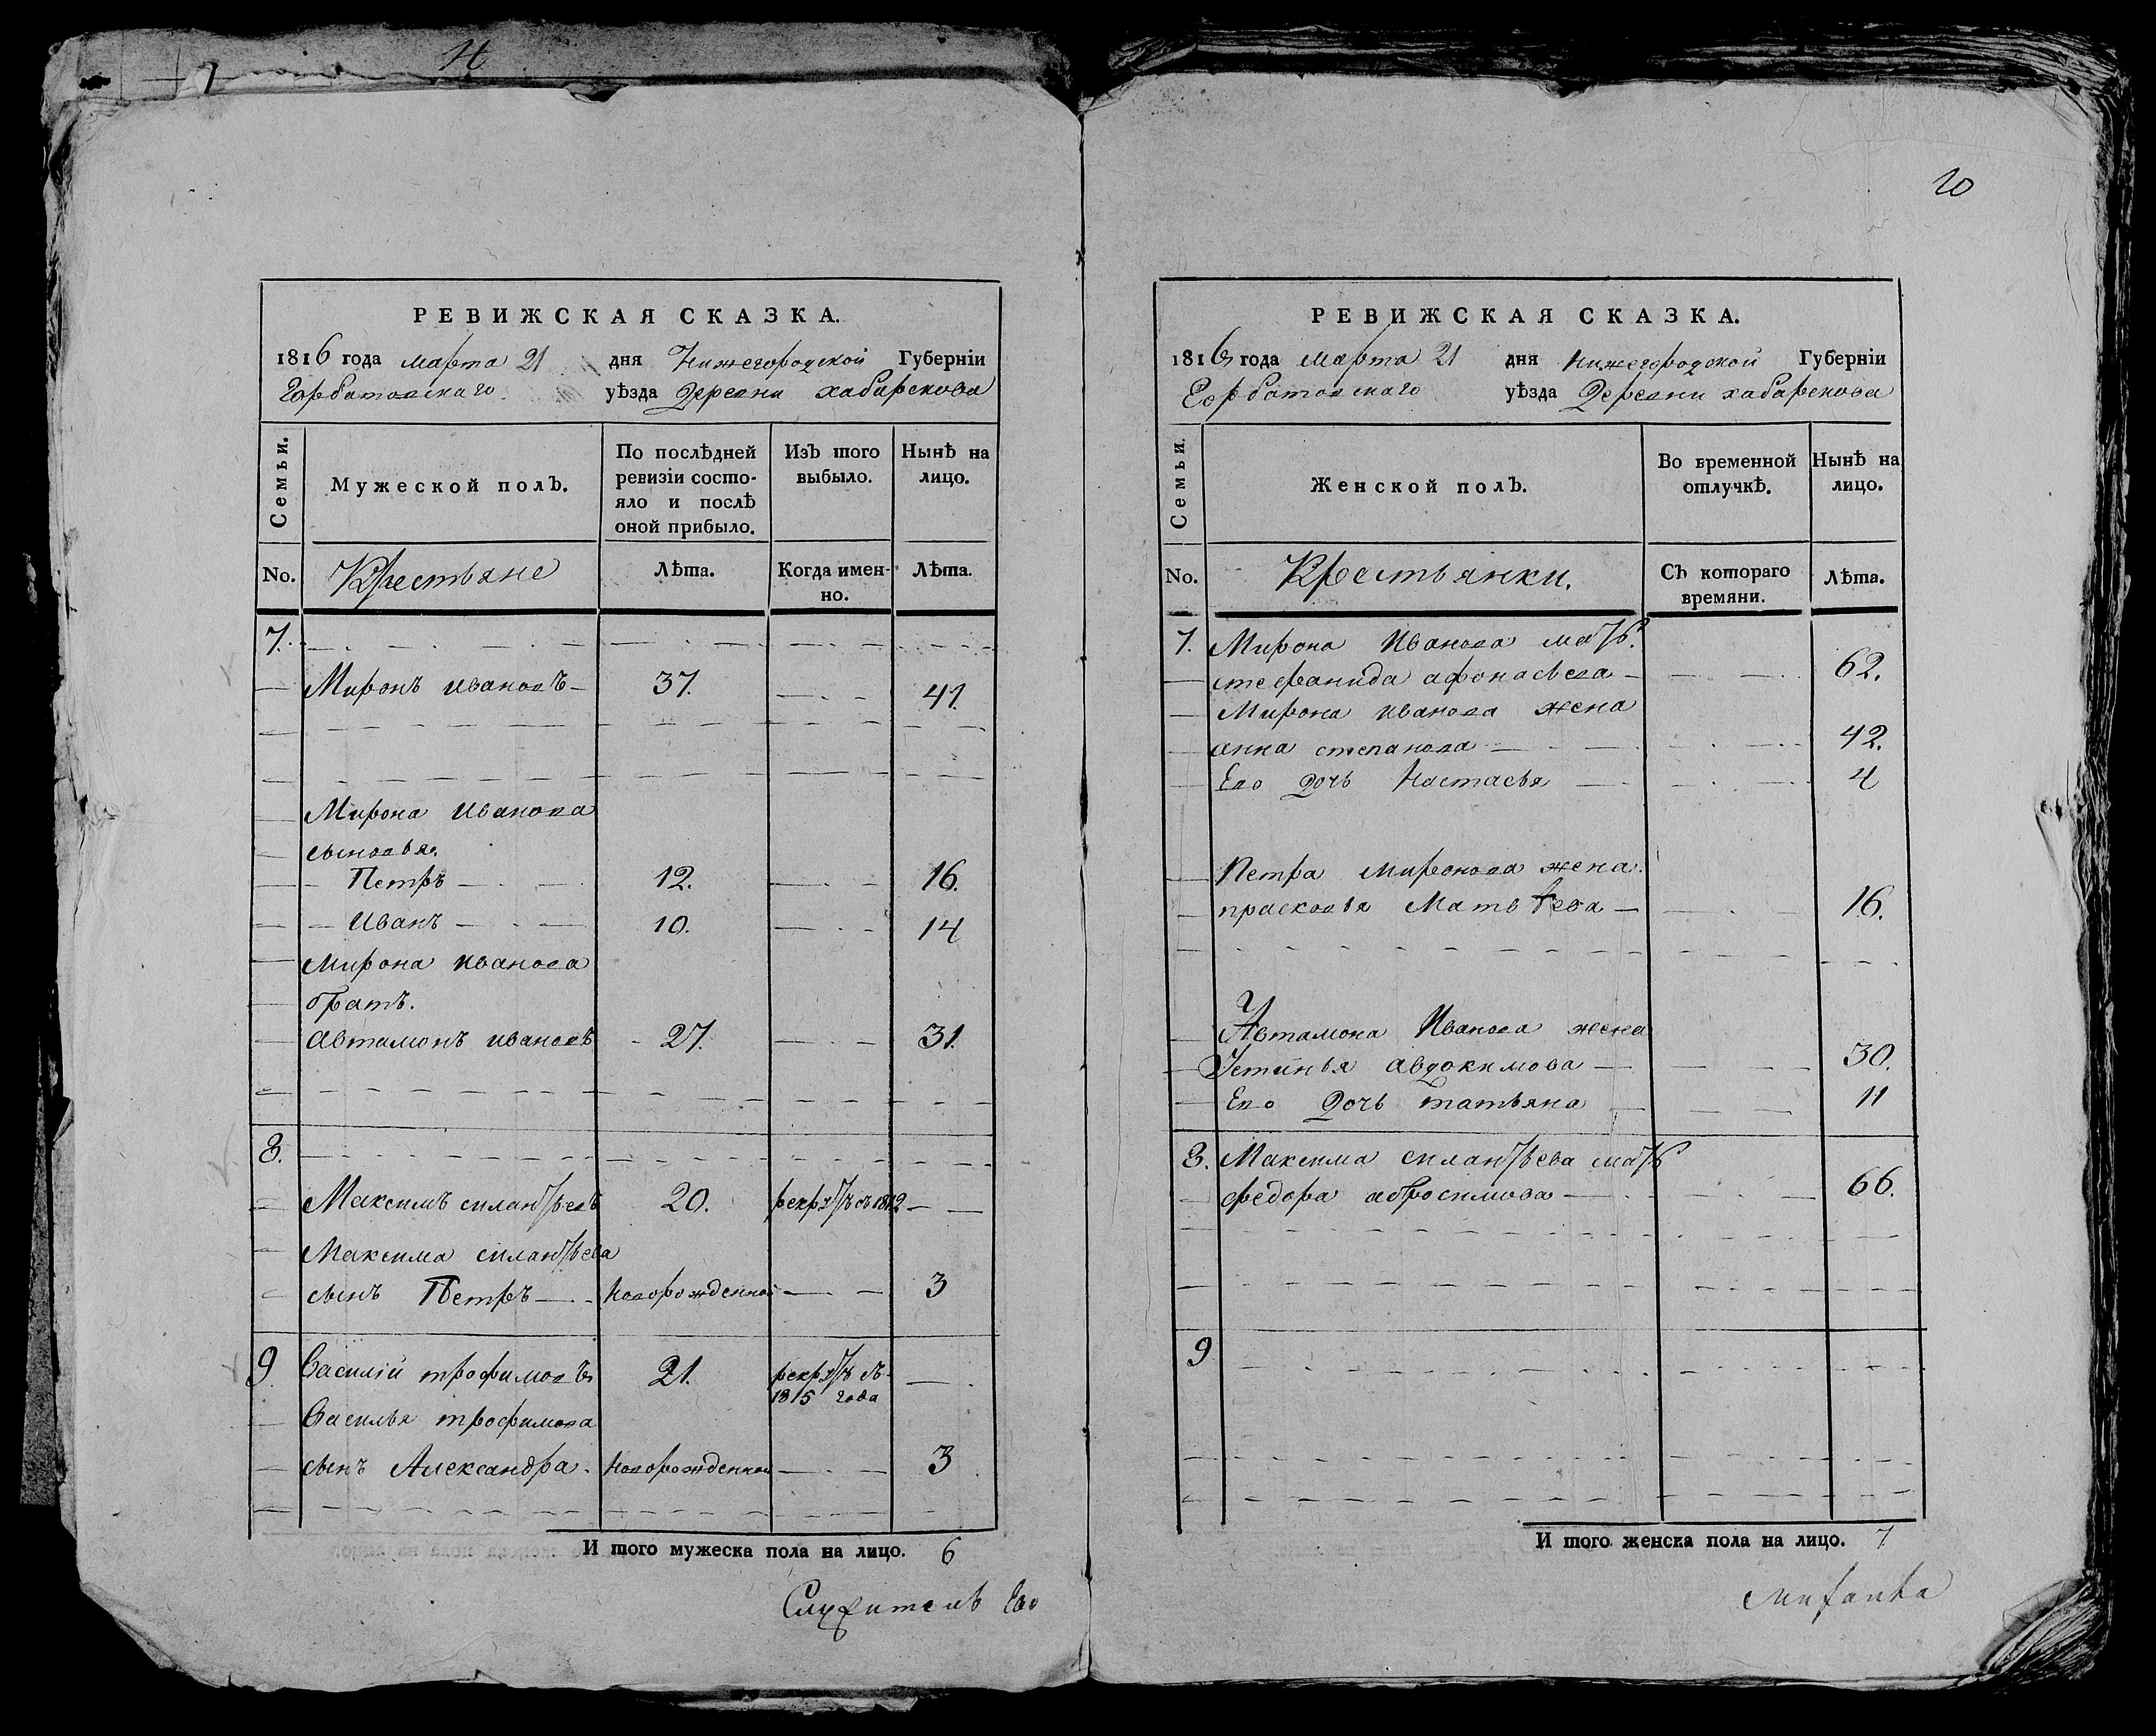 РЕВИЖСКАЯ СКАЗКА.
1816 года марта 21 дня Нижегородской Губернїи
Горбатовскаго уѣзда Деревни хабарскова
Семьи.
Мужеской полъ.
По послѣдней ревизїи состо-
яло и послѣ
оной прибыло.
Изъ того
выбыло.
Нынѣ на
лицо.
No. Крестьяне Лѣта. Когда имен-
но. Лѣта.
7.
Миронъ ивановъ 37. 41.
Мирона Иванова
сыновья.
Петръ 12. 16.
Иванъ 10. 14
Мирона иванова
братъ.
Автамонъ ивановъ 27. 31.
8.
Максимъ силантьевъ 20. рекрутъ въ 1812
Максима силантьева
сынъ Петръ Новорожденной 3
9. Василїй трофимовъ 21. рекрутъ въ
1815 года
Василья трофимова
сынъ Александра. Новорожденной 3
И того мужеска пола на лицо. 6
Служитель Ево
20
РЕВИЖСКАЯ СКАЗКА.
1816 года марта 21 дня Нижегородской Губернїи
Горбатовскаго уѣзда Деревни хабарскова
Семьи.
Женской полъ.
Во временной
отлучкѣ.
Нынѣ на
лицо.
No. Крестьянки. Съ котораго
времяни. Лѣта.
7. Мирона Иванова мать
стефанида афонасьева 62.
Мирона иванова жена
анна степанова 42.
Ево Дочь Настасья 4
Петра миронова жена.
прасковья Матвѣева 16.
Автамона Иванова жена
Устинья авдокимова 30.
Ево Дочь татьяна 11
8. Максима силантьева мать
федора абросимова 66.
9
И того женска пола на лицо. 7